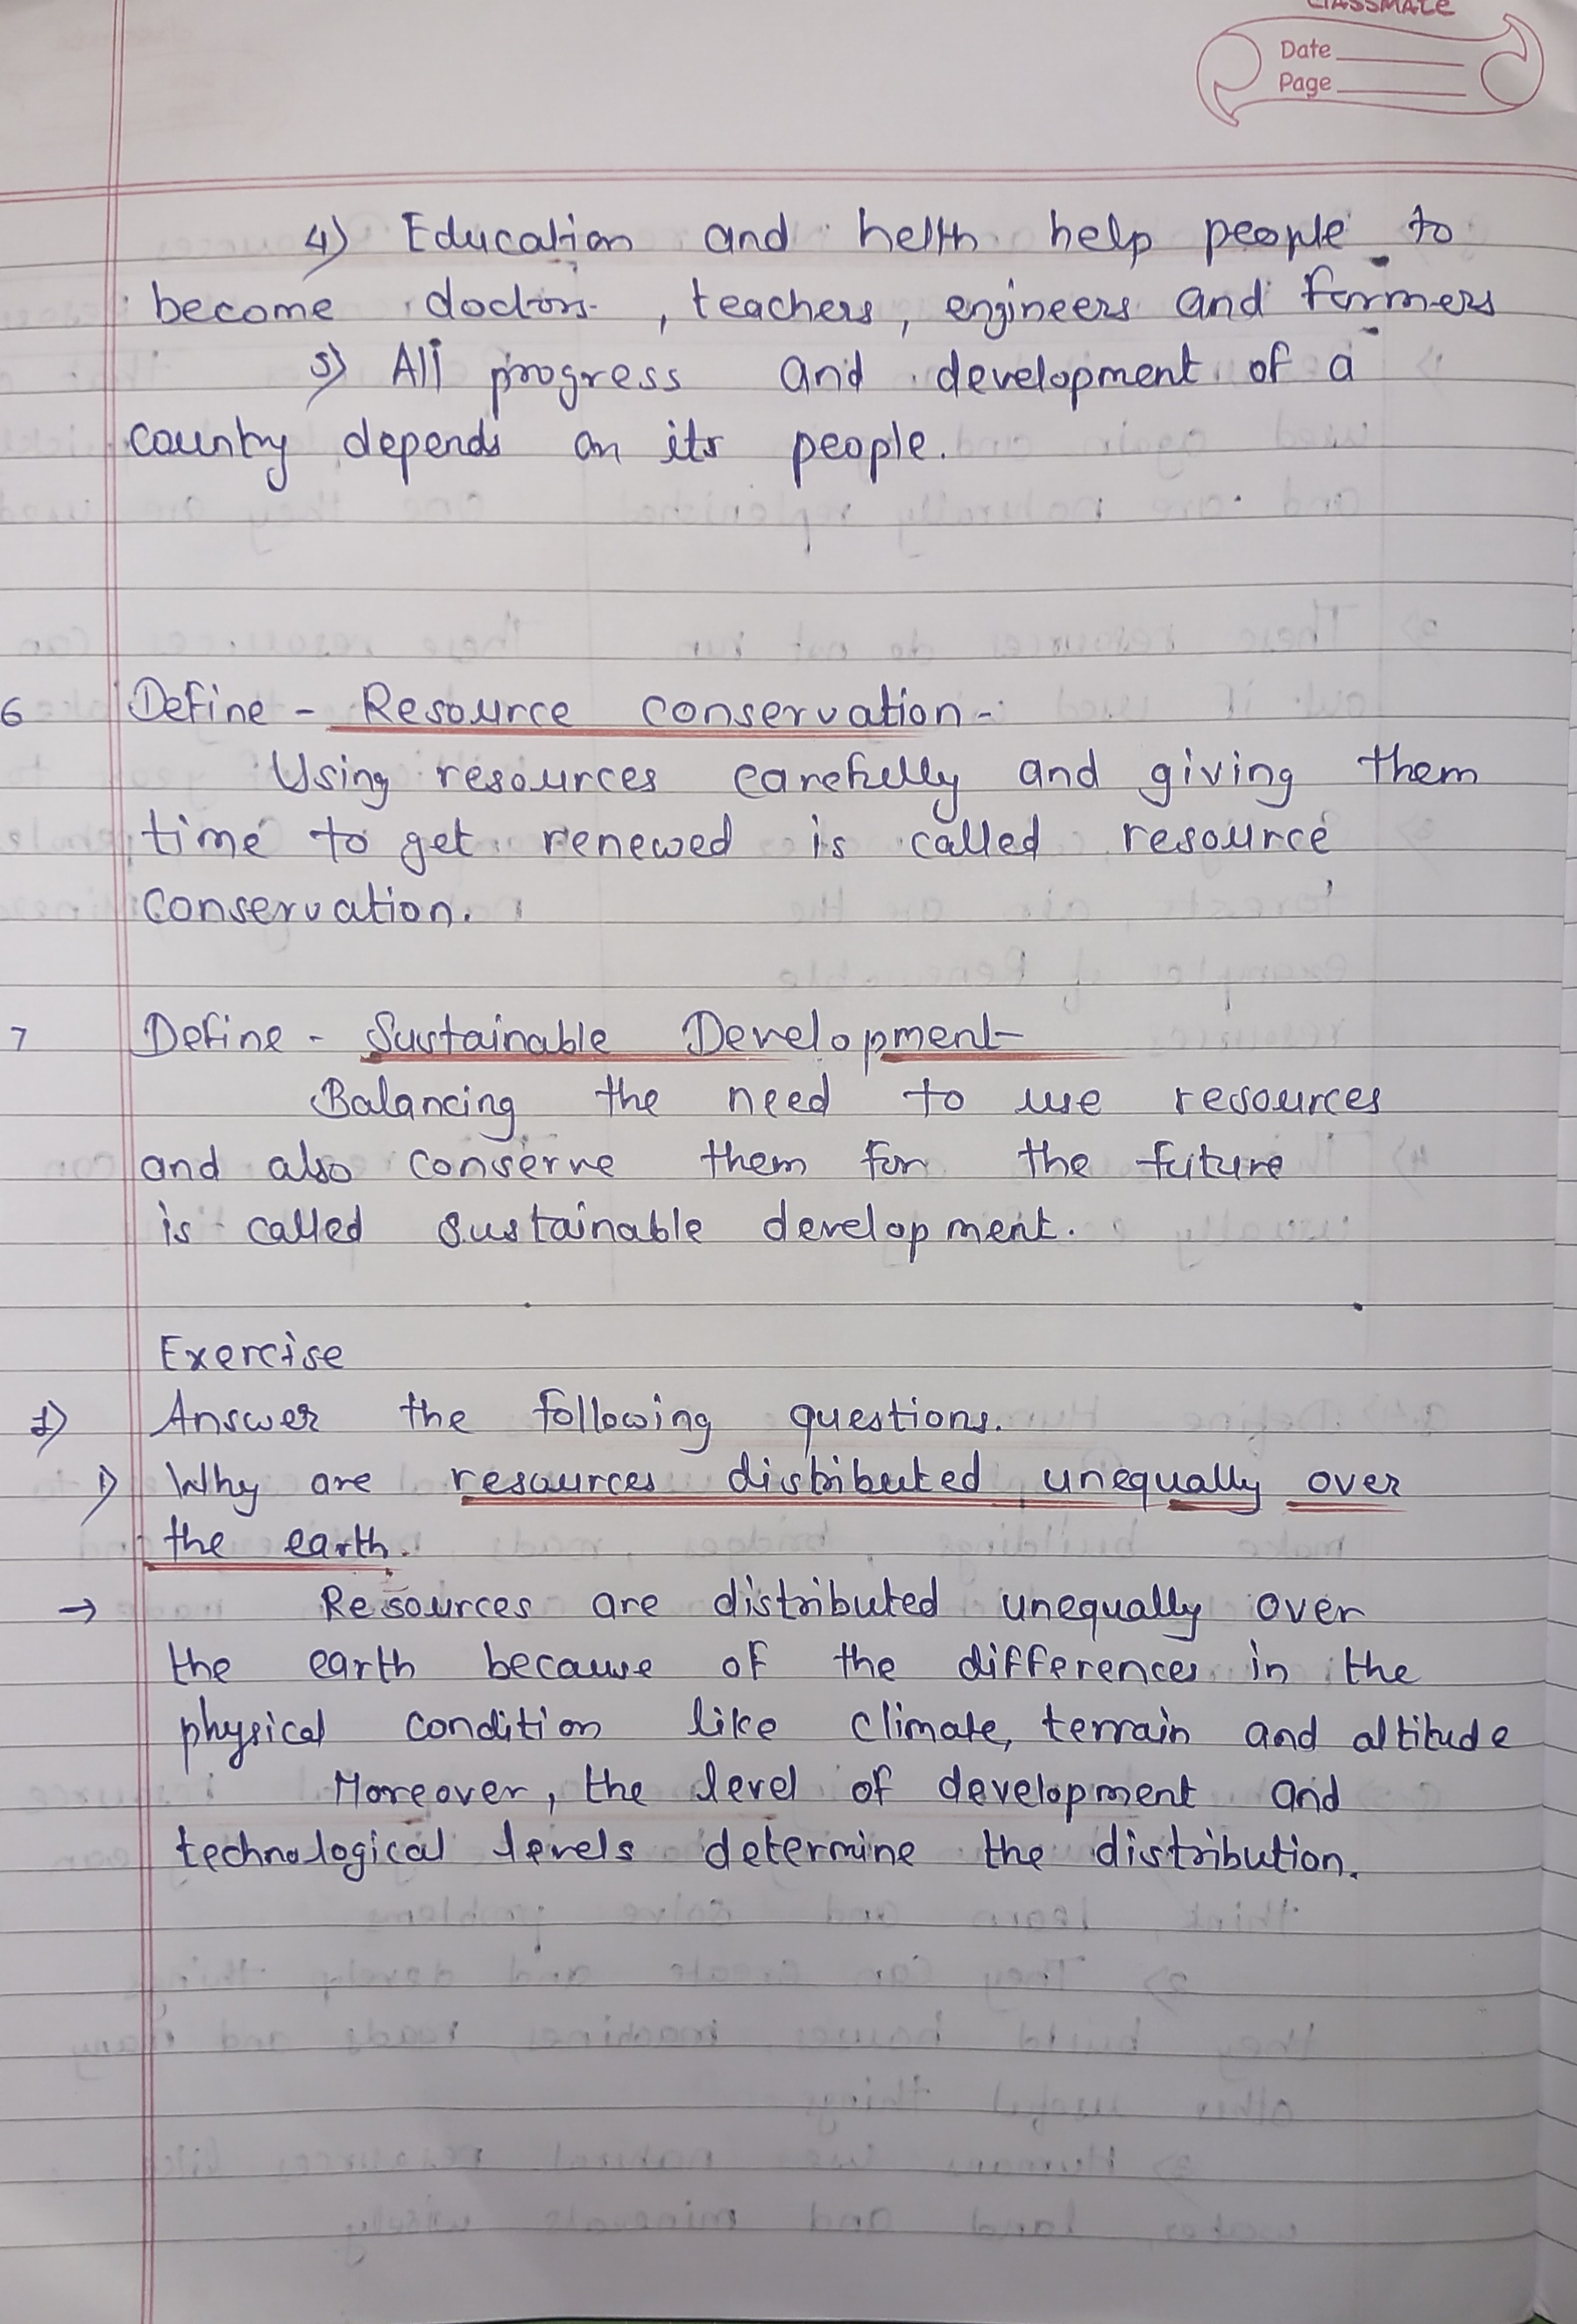 classmate
Date
Page
4) Education and helth help people to
become doctors , teachers, engineers and farmers
5) All progress and development of a
country depends on its people.
6 Define - Resource conservation -
Using resources carefully and giving them
time to get renewed is called resource
conservation.
7 Define - Sustainable Development -
Balancing the need to use resources
and also conserve them for the future
is called sustainable development.
Exercise
1) Answer the following questions.
1) Why are resources distributed unequally over
the earth.
→ Resources are distributed unequally over
the earth because of the differences in the
physical condition like climate, terrain and altitude
Moreover, the level of development and
technological levels determine the distribution.